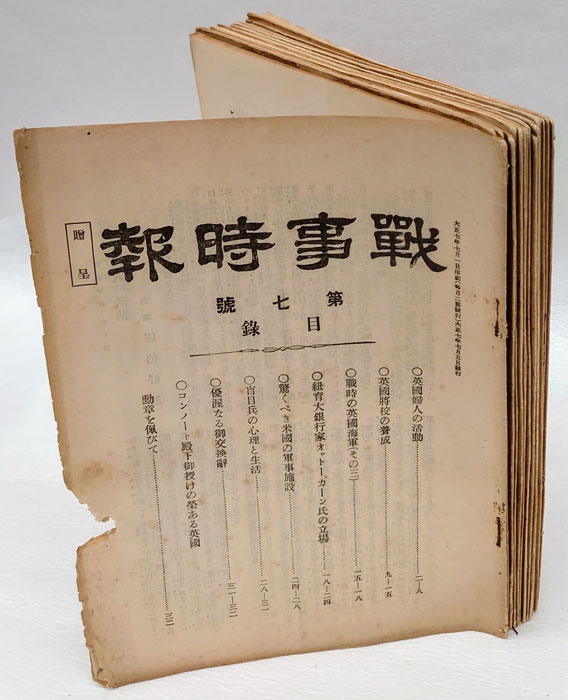 大正七年七月一日印刷(每月二回發行)大正七年七月五日發行
戰事時報
贈呈
第七號
目錄
〇英國婦人の活動……二―八
〇英國將校の養成……九―一五
〇戰時の英國海軍(その三)……一五―一八
〇紐育大銀行家オットーカーン氏の立場……一八―二四
〇驚くべき米國の軍事施設……二四―二八
〇盲目兵の心理と生活……二八―三一
〇優渥なる御交換辭……三一―三二
〇コンノート殿下御授けの榮ある英國
勳章を佩びて……三三